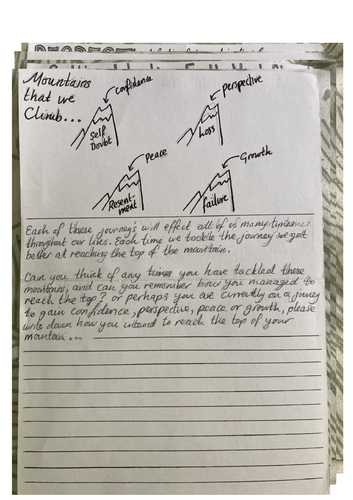 Mountains
that we
Climb...
confidence
Self
Doubt
perspective
Loss
Peace
Resent-
ment
Growth
failure
Each of these journeys will effect all of us many times
throughout our lives. Each time we tackle the journey we get
better at reaching the top of the mountain.
Can you think of any times you have tackled these
mountains, and can you remember how you managed to
reach the top? or perhaps you are currently on a journey
to gain confidence, perspective, peace or growth, please
write down how you intend to reach the top of your
mountain....